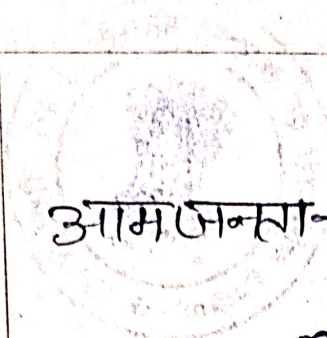 आम जनता-